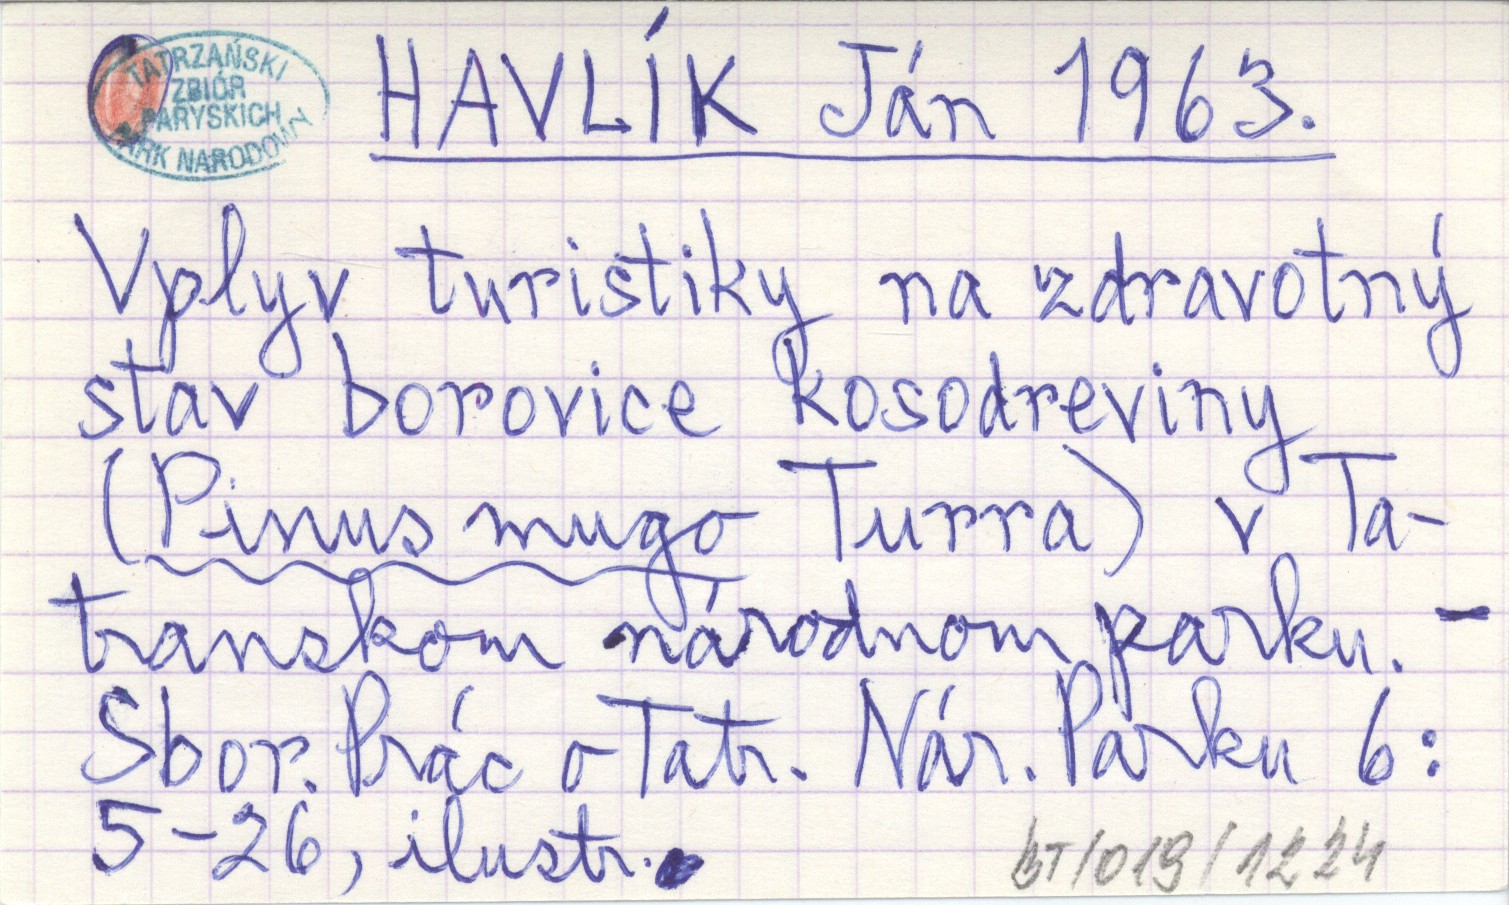 TATRZAŃSKI
ZBIÓR
PARYSKICH
PARK NARODOWY
HAVLÍK Ján 1963.
Vplyv turistiky na zdravotný
stav borovice kosodreviny
(Pinus mugo Turra) v Ta-
transkom národnom parku. -
Sbor. Prác o Tatr. Nár. Parku 6:
5-26, ilustr.
bT/019/1224